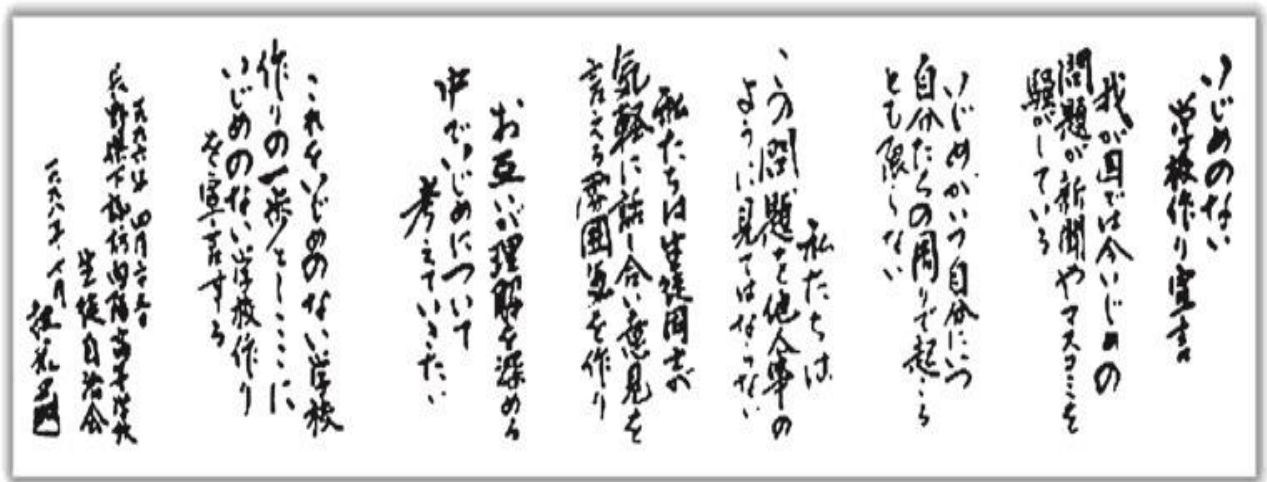 いじめのない
学校作り宣言
我が国では今いじめの
問題が新聞やマスコミを
騒がしている
いじめがいつ自分にいつ
自分たちの周りで起こる
とも限らない
私たちは
こう問題を他人事の
ように見てはならない
私たちは生徒同士が
気軽に話し合い意見を
言える雰囲気を作り
お互いが理解を深める
中でいじめについて
考えていきたい
これをいじめのない学校
作りの一歩としここに
いじめのない学校作り
を宣言する
一九九六年 四月二十五日
長野県下諏訪向陽高等学校
生徒自治会
一九九八年 八月